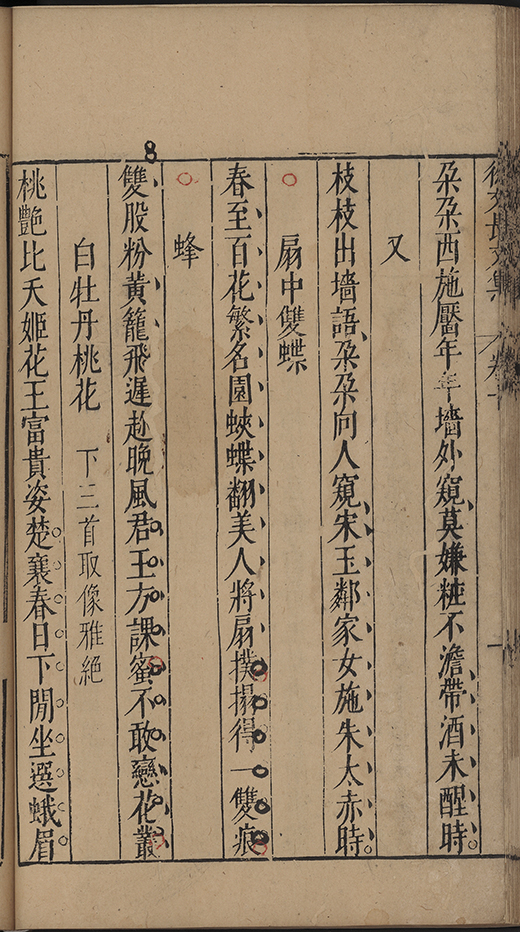 徐文長文集
卷十
朶朶西施靨年年墻外窺莫嫌粧不澹帶酒未醒時
又
枝枝出墻語朶朶向人窺宋玉鄰家女施朱太赤時
扇中雙蝶
春至百花繁名園蛺蝶翻美人將扇撲搨得一雙痕
蜂
雙股粉黃籠飛遲趂晚風君王方課蜜不敢戀花叢
白牡丹桃花 下三首取像雅絕
桃艷比夭姬花王富貴姿楚襄春日下閒坐選蛾眉
8